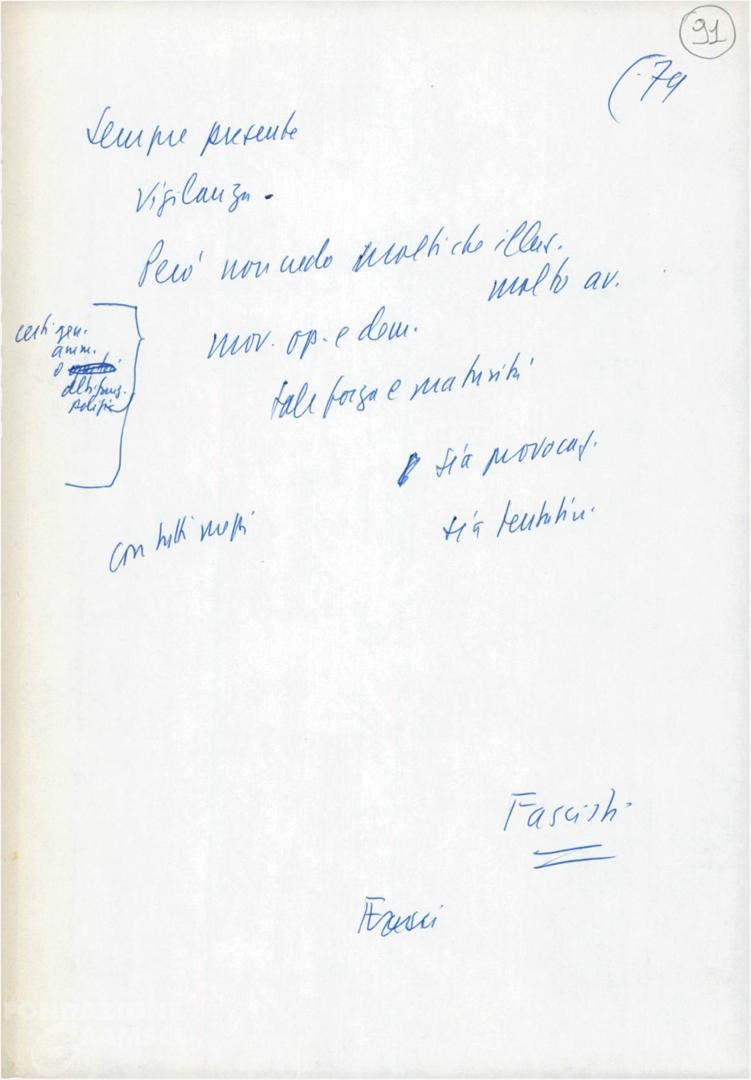 91
(79
Sempre presente
Vigilanza.
Però non credo molti che illus.
molto av.
mov. op. e dem.
tale forza e maturità
sia provocaz.
sia tentativi
certi gen.
amm.
e
alti funz.
polizia
con tutti
Fascisti
FONDAZIONE